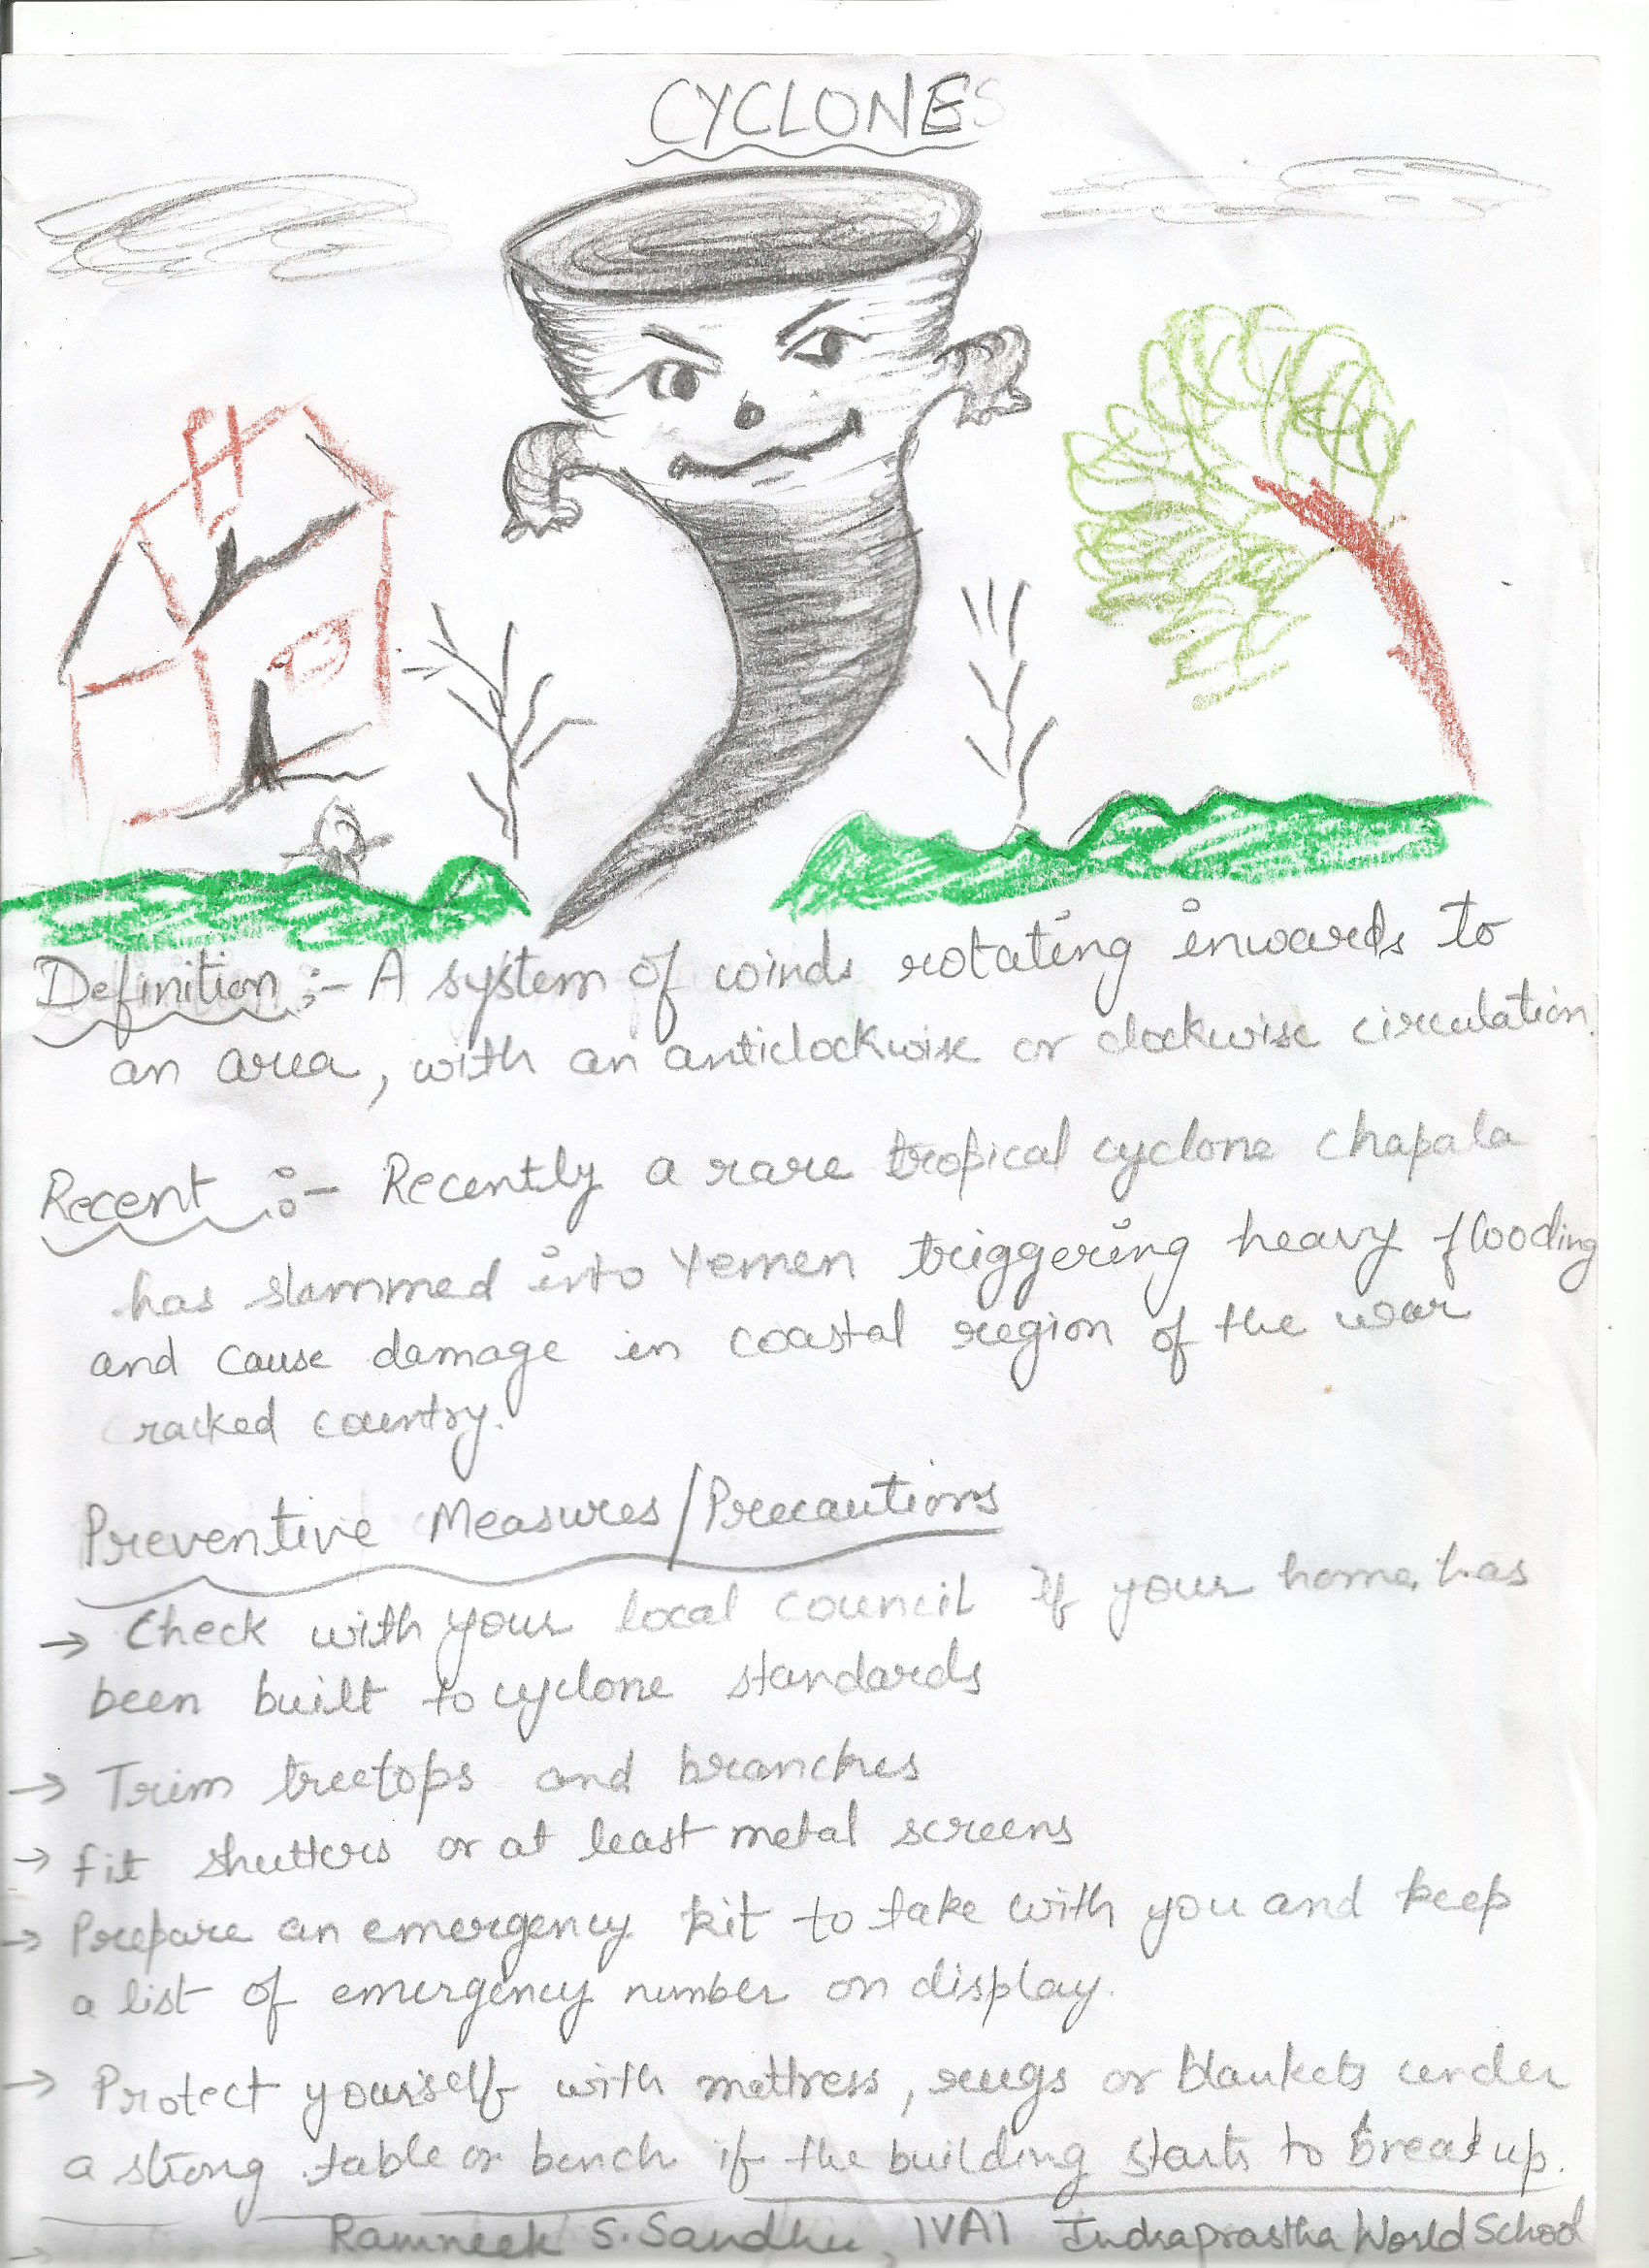 CYCLONES
Definition :- A system of winds rotating inwards to
an area, with an anticlockwise or clockwise circulation.
Recent :- Recently a rare tropical cyclone chapala
has slammed into Yemen triggering heavy flooding
and cause damage in coastal region of the war
cracked country.
Preventive Measures/Precautions
→ Check with your local council if your home has
been built to cyclone standards
→ Trim treetops and branches
→ fit shutters or at least metal screens
→ Prepare an emergency kit to take with you and keep
a list of emergency number on display.
→ Protect yourself with mattress, rugs or blankets under
a strong table or bench if the building starts to break up.
Ramneek S. Sandhu, IVA1 Indraprastha World School